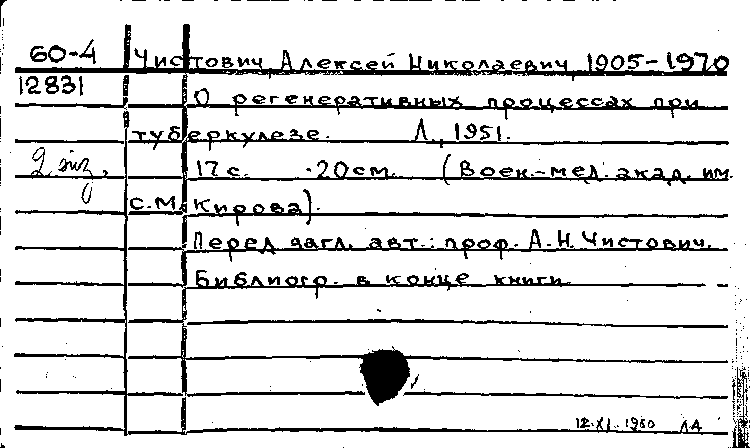 60-4 Чистович, Алексей Николаевич, 1905-1970
12831
О регенеративных процессах при
туберкулезе. Л., 1951.
2 экз. 17 с. 20 см. (Воен.-мед. акад. им.
С.М. Кирова).
Перед загл. авт.: проф. А.Н. Чистович.
Библиогр. в конце книги
12.XI.1980 ЛА